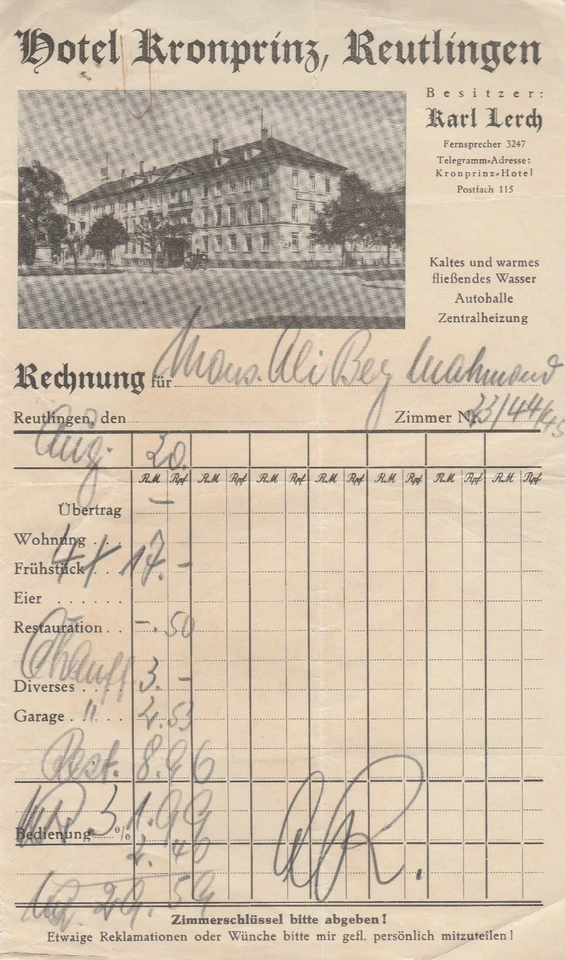 Hotel Kronprinz, Reutlingen
Besitzer:
Karl Lerch
Fernsprecher 3247
Telegramm-Adresse:
Kronprinz-Hotel
Postfach 115
Kaltes und warmes
fließendes Wasser
Autohalle
Zentralheizung
Rechnung für Mons. Ali Bey Mahmoud
Reutlingen, den Zimmer Nr. 43/44/45
Aug. 20.
RM Rpf RM Rpf RM Rpf RM Rpf RM Rpf RM Rpf RM Rpf
Übertrag –
Wohnung
Frühstück 4 17.–
Eier
Restauration –.50
Chauff
Diverses 3.–
Garage "
Rest. 8.96
Bedienung % 1.99
29.59
Zimmerschlüssel bitte abgeben!
Etwaige Reklamationen oder Wünche bitte mir gefl. persönlich mitzuteilen!